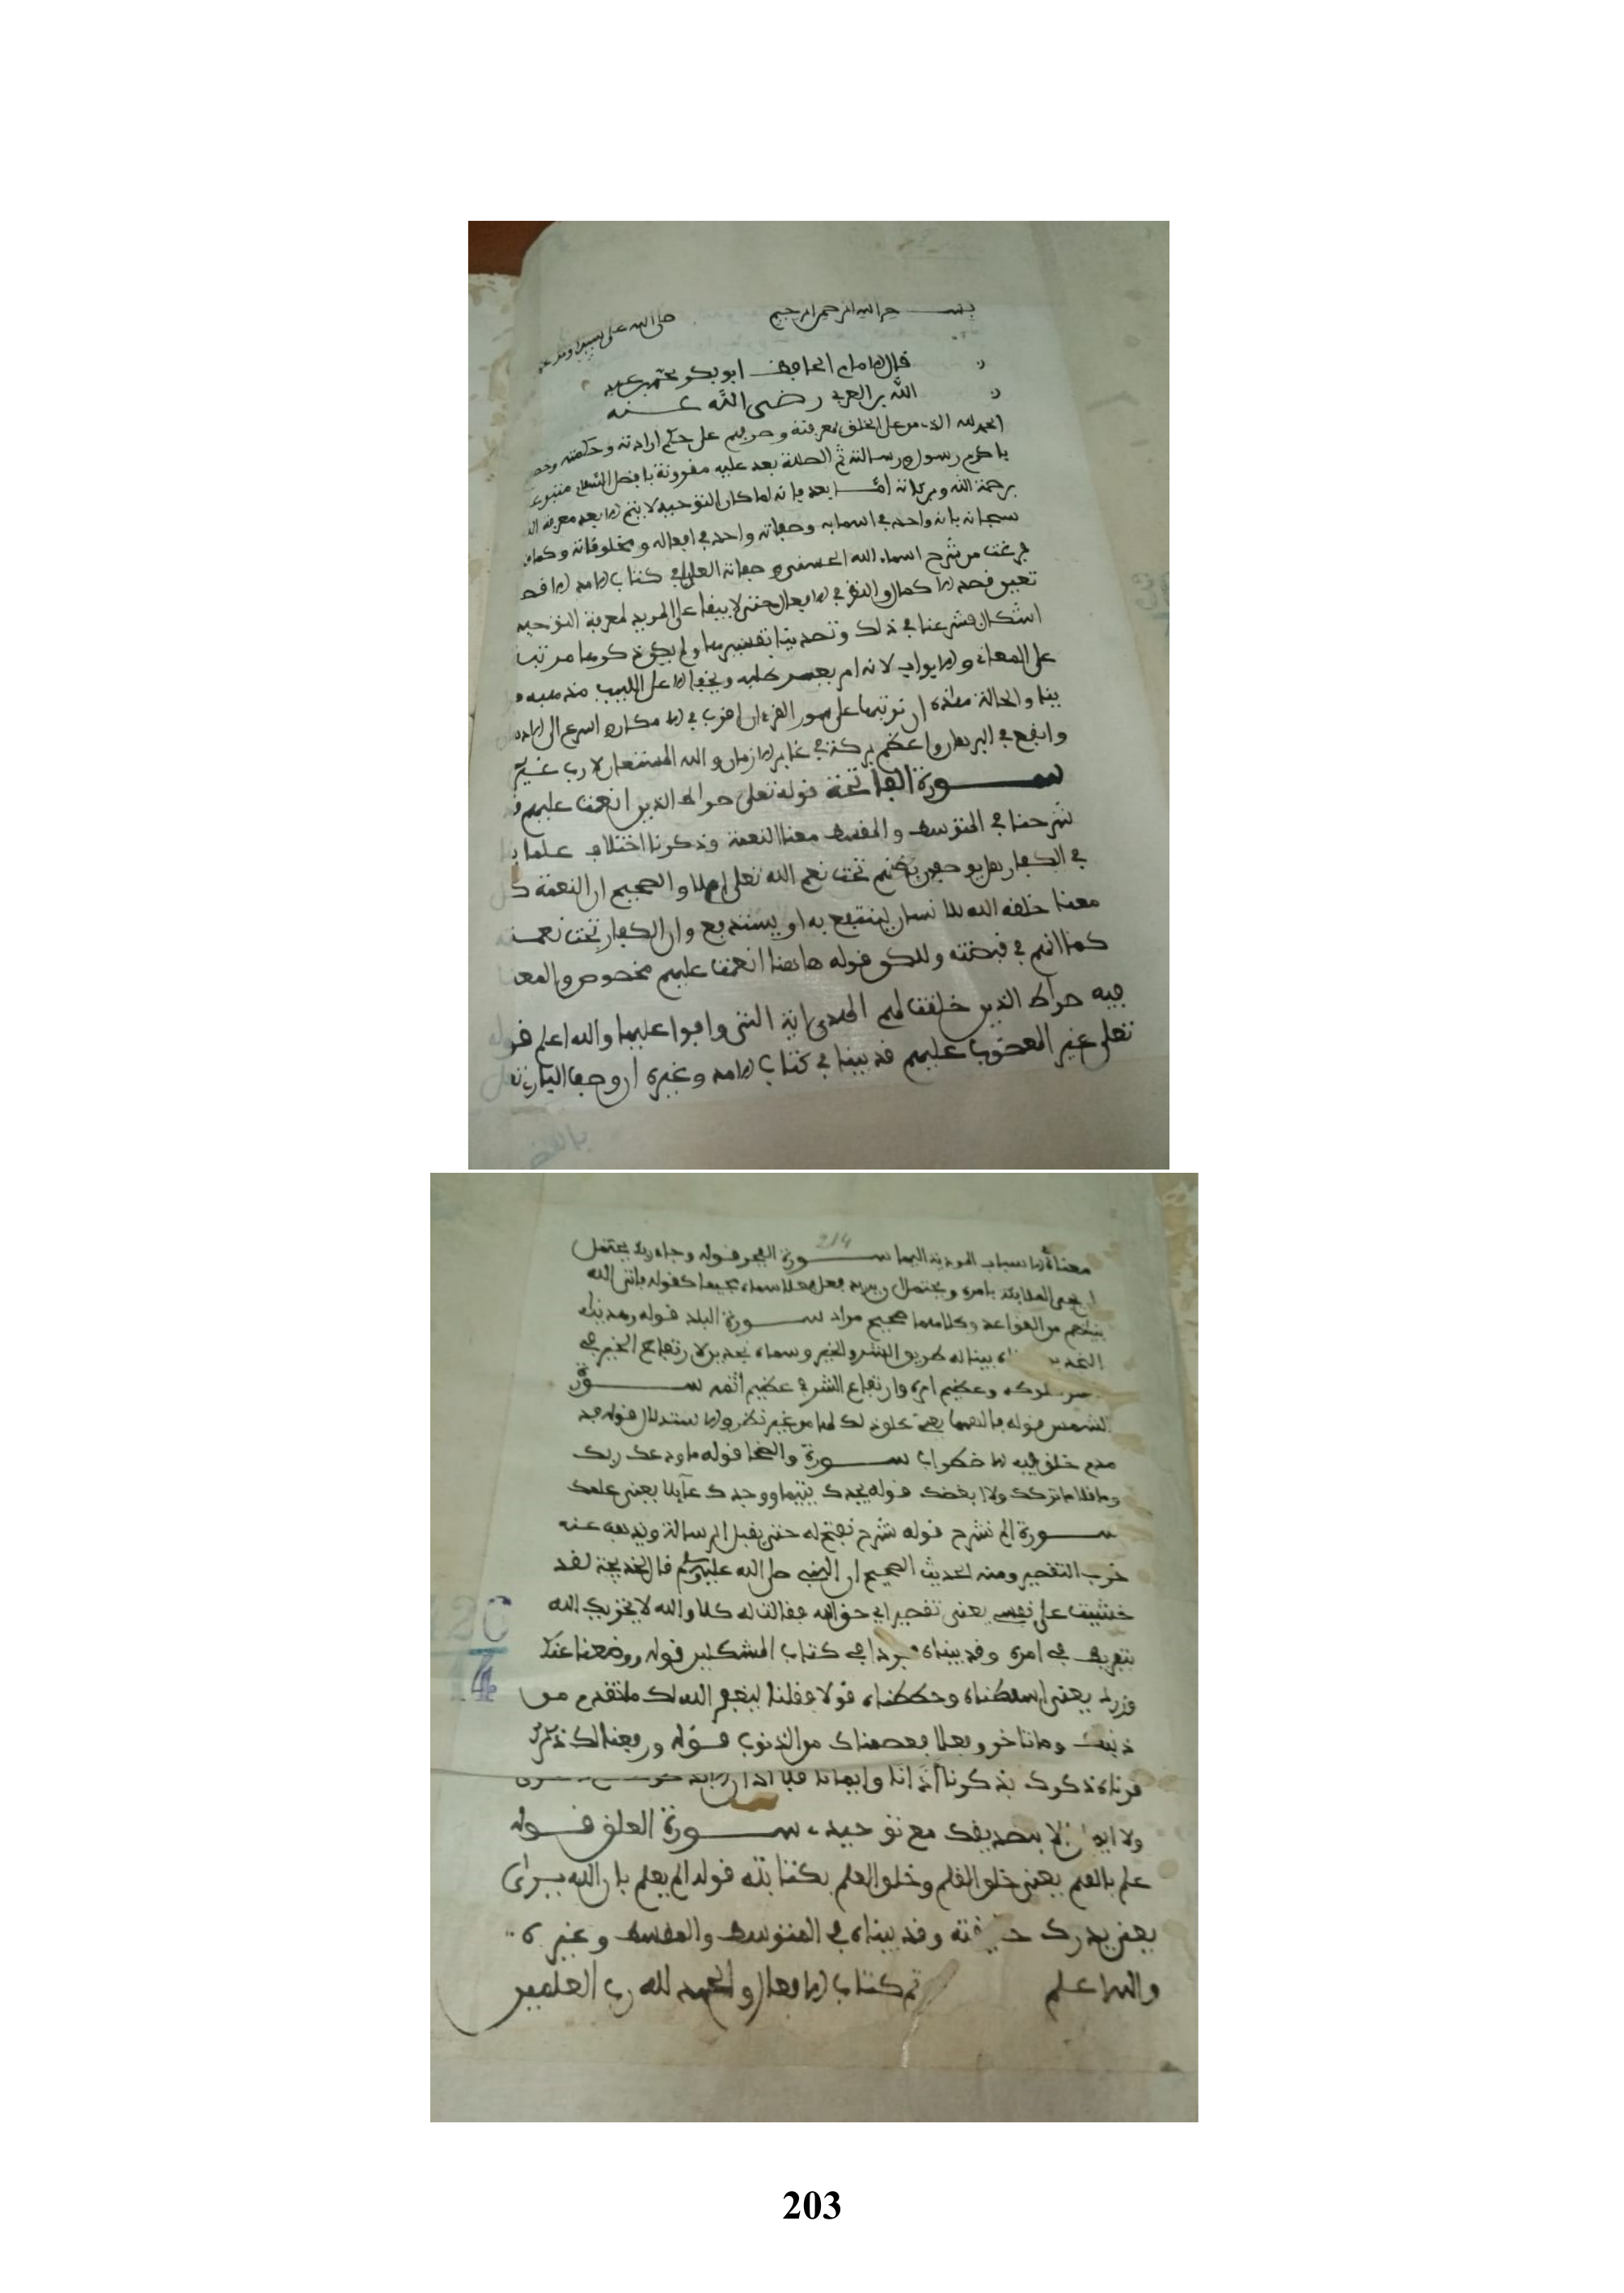 بسم الله الرحمن الرحيم صلى الله على سيدنا ومو
قال الامام الحافظ ابو بكر محمد بن عبد
الله بن العربي رضي الله عنه
الحمد لله الذي من على الخلق بمعرفته وصرفهم على حكم ارادته وحكمته
باكرم رسول ورسالته ثم الصلاة بعد عليه مقرونة بافضل السلام متبوعة
برحمة الله وبركاته اما بعد فانه لما كان التوحيد لا يتم الا بعد معرفة
سبحانه بانه واحد في اسمايه وصفاته واحد في افعاله ومخلوقاته وكما
فرغت من شرح اسماء الله الحسنى وصفاته العلى في كتاب الامد الاقص
تعين قصد الاكمال والنظر في الافعال حتى لا يبقا على المريد لمعرفة التوحيد
اشكال فشرعنا في ذلك وتصدينا تفسيرها ولم يكن ذكرها مرتبا
على المعاني والابواب لانه امر يعسر طلبه ويخفى الا على اللبيب مذهبه
بنا والحالة هذه ان نرتبها على سور القرءان اقرب في الامكان واسرع الى
وانفع في البرهان واعظم بركة في غابر الازمان والله المستعان لا رب غيره
سورة الفاتحة قوله تعلى صراط الذين انعمت عليهم
شرحنا في المتوسط والمقسط معنا النعمة وذكرنا اختلاف علماينا
في الكفار هل يوصفون بانهم تحت نعم الله تعلى ام لا والصحيح ان النعمة كل
معنا خلقه الله للانسان لينتفع به او يستدفع وان الكفار تحت نعمته
كما انهم في قبضته ولكن قوله هاهنا انعمت عليهم مخصوص والمعنا
فيه صراط الذين خلقت لهم الهداية التي وافوا عليها والله اعلم قوله
تعلى غير المغضوب عليهم قد بينا في كتاب الامد وغيره ان وصف الباري تعلى
214
معناه الاسباب المودية اليها سورة الفجر قوله وجاء ربك يحتمل
ان يجي الملايكة بامره ويحتمل ان يريد فعل فعلا سماه مجيئا كقوله فاتى الله
بنيانهم من القواعد وكلاهما صحيح مراد سورة البلد قوله وهديناه
النجدين بيناله طريق الشر والخير وسماه نجدين لارتفاع الخير في
وعظيم امره وارتفاع الشر في عظيم اثمه سورة
الشمس قوله فالهمها يعني خلق ذلك لها من غير نظر ولا استدلال قوله
خلق فيه الاضطراب سورة والضحا قوله ما ودعك ربك
وما قلا ما تركك ولا ابغضك قوله يجدك يتيما ووجدك عآيلا يعني علمك
سورة الم نشرح قوله نشرح نفتح له حتى يقبل الرسالة ويذهب عنه
خوف التقصير ومنه الحديث الصحيح ان النبي صلى الله عليه وسلم قال لخديجة لقد
خشيت على نفسي يعني تقصيرا في حق الله فقالت له كلا والله لا يخزيك الله
بتفريط في امره وقد بيناه في كتاب المشكلين قوله ووضعنا عنك
وزرك يعني اسقطناه وحططناه قولا فقلنا ليغفر الله لك ما تقدم من
ذنبك وما تاخر وفعلا فعصمناك من الذنوب قوله ورفعنا لك ذكرك
قرناه ذكرك بذكرنا اذانا وايمانا فلا اذان
ولا ايمان الا بتصديقك مع توحيده سورة العلق قوله
علم بالقلم يعني خلق القلم وخلق العلم بكتابته قوله الم يعلم بان الله يرى
يعني يدرك حقيقته وقد بيناه في المتوسط والمقسط وغيره
والله اعلم تم كتاب الافعال والحمد لله رب العلمين
203